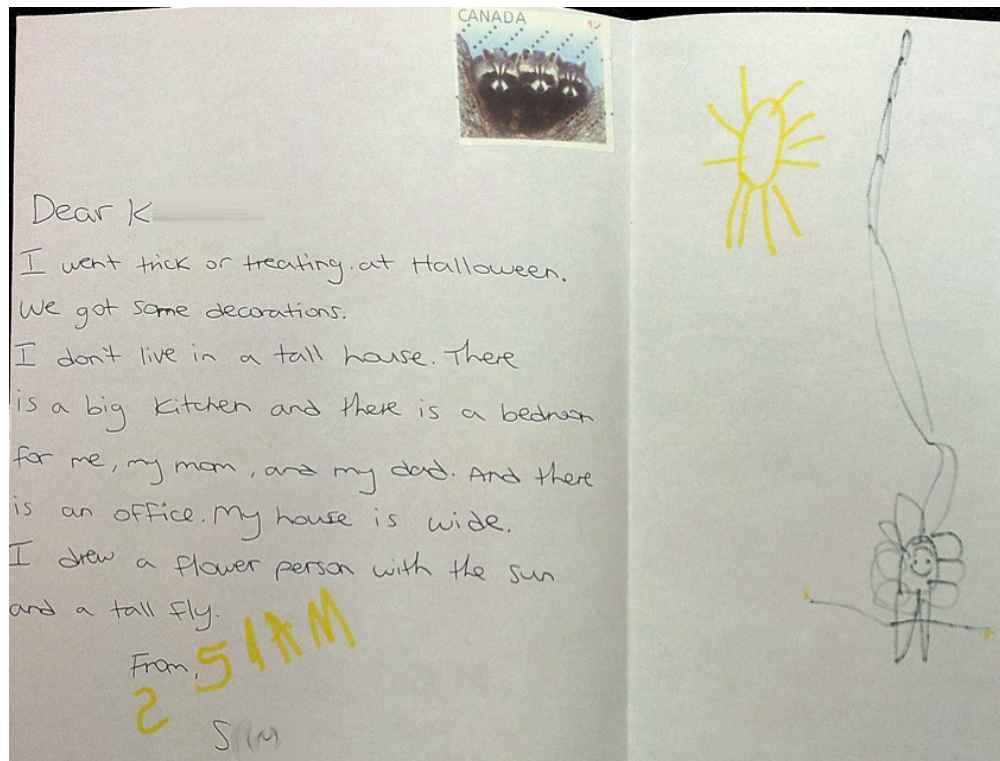 CANADA
Dear K
I went trick or treating. at Halloween.
We got some decorations.
I don't live in a tall house. There
is a big kitchen and there is a bedroom
for me, my mom, and my dad. And there
is an office. My house is wide.
I drew a flower person with the sun
and a tall fly.
From,